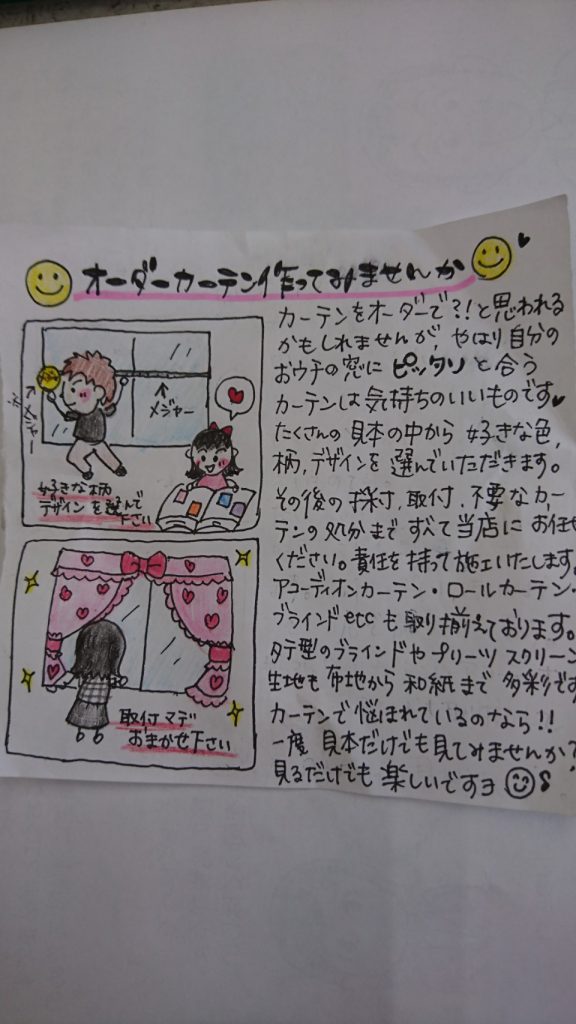 オーダーカーテン作ってみませんか
メジャー
メジャー
好きな柄
デザインを選んで
下さい
取付マデ
おまかせ下さい
カーテンをオーダーで?!と思われる
かもしれませんが、やはり自分の
おウチの窓にピッタリと合う
カーテンは気持ちのいいものです♥
たくさんの見本の中から好きな色,
柄,デザインを選んでいただきます。
その後の採寸,取付,不要なカー
テンの処分まですべて当店にお任せ
ください。責任を持って施工いたします。
アコーディオンカーテン・ロールカーテン・
ブラインドetcも取り揃えております。
タテ型のブラインドやプリーツスクリーン
生地も布地から和紙まで多彩です
カーテンで悩まれているのなら!!
一度見本だけでも見てみませんか?
見るだけでも楽しいですヨ